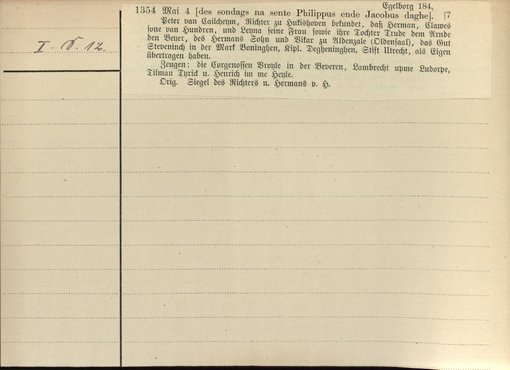 Egelborg 184,
1354 Mai 4 [des sondags na sente Philippus ende Jacobus daghe]. [7
Peter van Calcheym, Richter zu Hukishoven bekundet, daß Herman, Clawes
sone van Hundren, und Leyna seine Frau sowie ihre Tochter Trude dem Arnde
den Beyer, des Hermans Sohn und Vikar zu Aldenzale (Oldensaal), das Gut
Steveninch in der Mark Boninghen, Kspl. Degheninghen, Stift Utrecht, als Eigen
übertragen haben.
Zeugen: die Corgenossen Vroyle in der Beveren, Lambrecht upme Ludorpe,
Tilman Tyrick u. Heinrich im me Heyle.
Orig. Siegel des Richters u. Hermans v. H.
I. 12